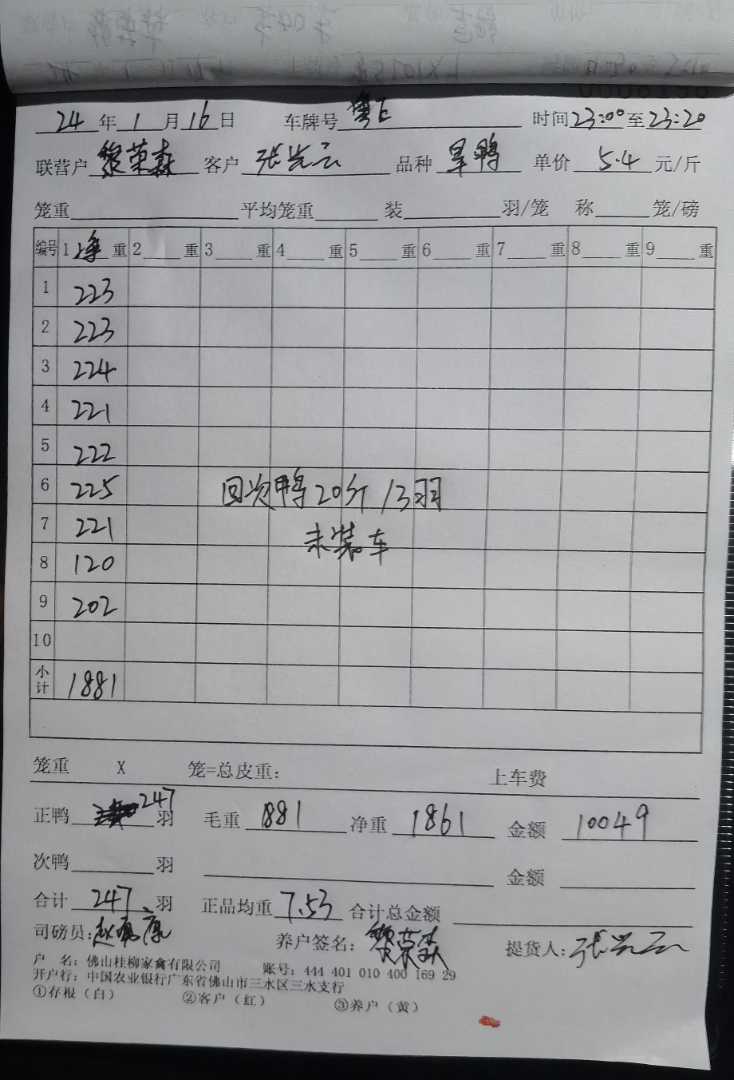 24年1月16日 车牌号 粤E 时间23:00至23:20
联营户 黎荣森 客户 张芝云 品种 旱鸭 单价 5.4 元/斤
笼重 平均笼重 装 羽/笼 称 笼/磅
编号 1 净重 2 重 3 重 4 重 5 重 6 重 7 重 8 重 9 重
1 223
2 223
3 224
4 221
5 222
6 225 回次鸭20斤13羽
7 221 未装车
8 120
9 202
10
小计 1881
笼重 X 笼=总皮重: 上车费
正鸭 247 羽 毛重 1881 净重 1861 金额 10049
次鸭 羽 金额
合计 247 羽 正品均重 7.53 合计总金额
司磅员: 养户签名: 黎荣森 提货人: 张芝云
户 名: 佛山桂柳家禽有限公司 账号: 444 401 010 400 169 29
开户行: 中国农业银行广东省佛山市三水区三水支行
①存根(白) ②客户(红) ③养户(黄)